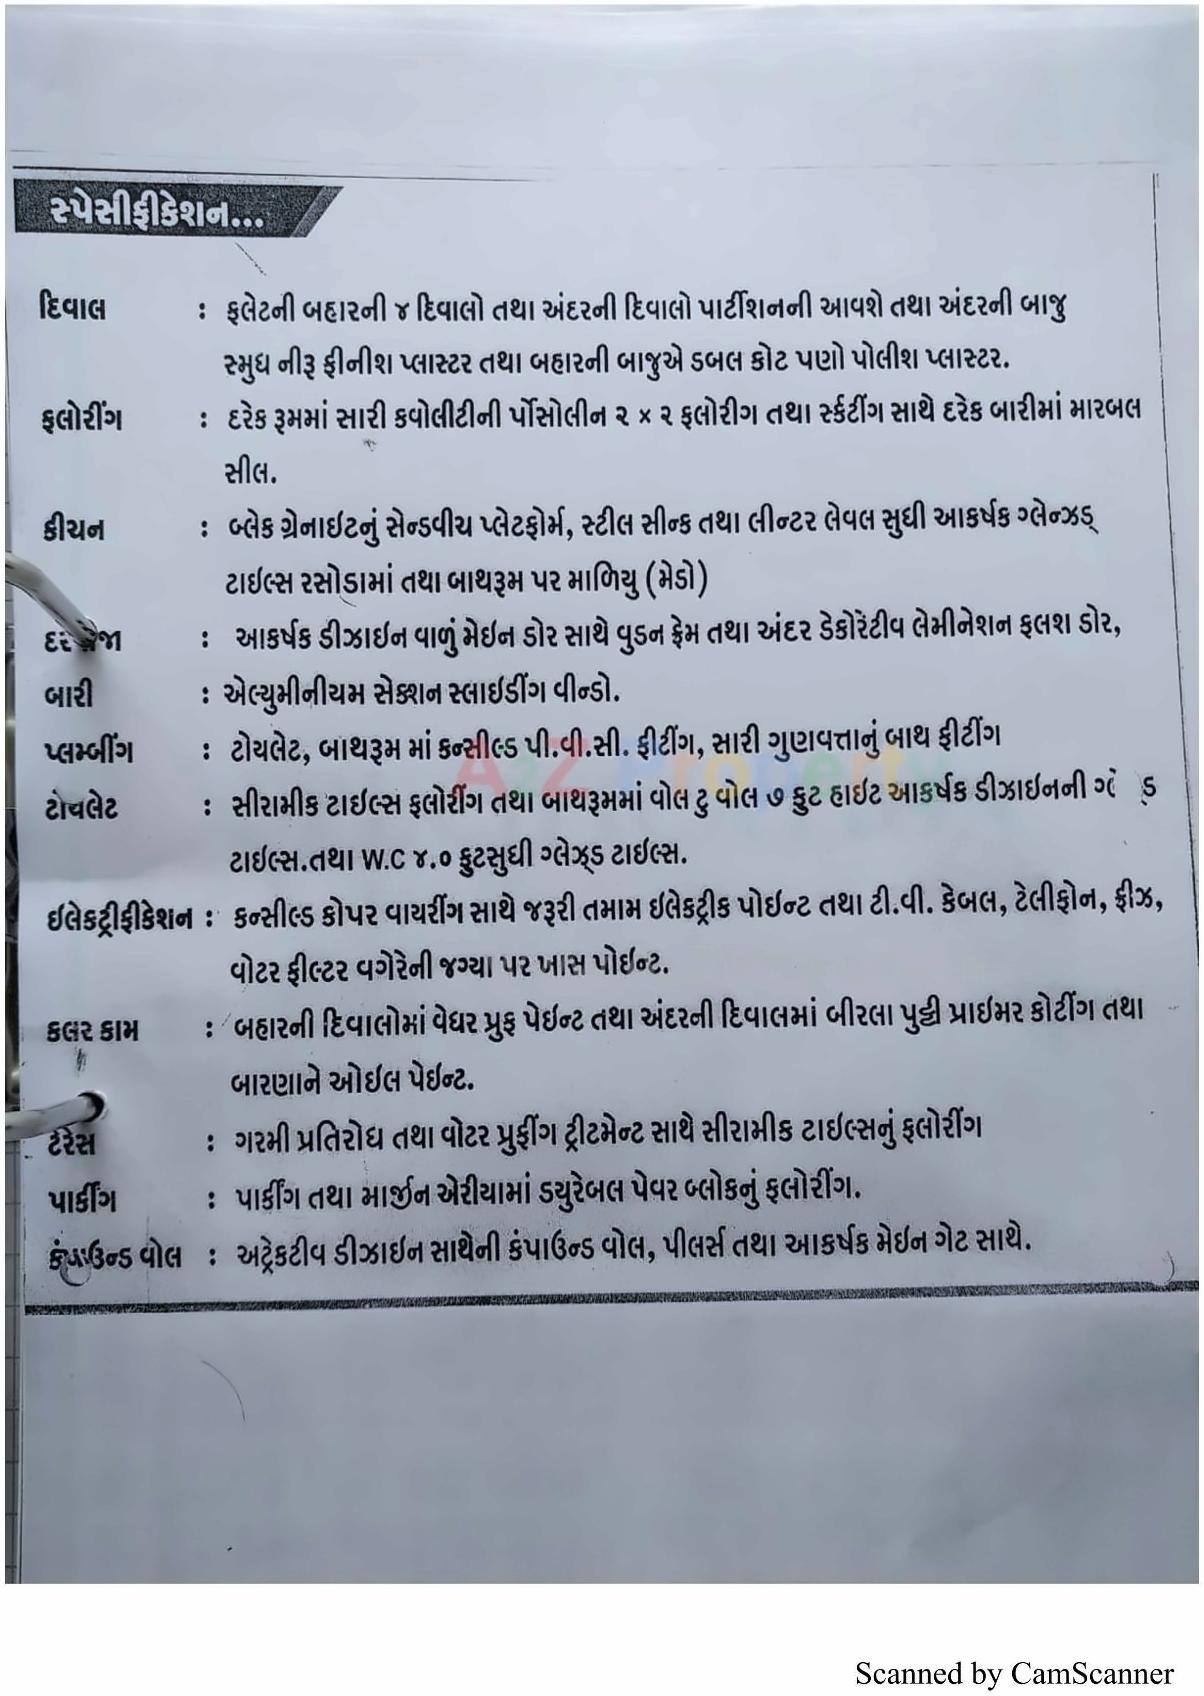 સ્પેસીફીકેશન...
દિવાલ : ફલેટની બહારની ૪ દિવાલો તથા અંદરની દિવાલો પાર્ટીશનની આવશે તથા અંદરની બાજુ
સ્મુધ નીરૂ ફીનીશ પ્લાસ્ટર તથા બહારની બાજુએ ડબલ કોટ પણો પોલીશ પ્લાસ્ટર.
ફલોરીંગ : દરેક રૂમમાં સારી કવોલીટીની ર્પોસોલીન ૨ × ૨ ફલોરીગ તથા ર્સ્કટીંગ સાથે દરેક બારીમાં મારબલ
સીલ.
કીચન : બ્લેક ગ્રેનાઇટનું સેન્ડવીચ પ્લેટફોર્મ, સ્ટીલ સીન્ક તથા લીન્ટર લેવલ સુધી આકર્ષક ગ્લેન્ઝડ્
ટાઇલ્સ રસોડામાં તથા બાથરૂમ પર માળિયુ (મેડો)
: આકર્ષક ડીઝાઇન વાળું મેઇન ડોર સાથે વુડન ફ્રેમ તથા અંદર ડેકોરેટીવ લેમીનેશન ફલશ ડોર,
બારી : એલ્યુમીનીયમ સેક્શન સ્લાઇડીંગ વીન્ડો.
પ્લમ્બીંગ : ટોયલેટ, બાથરૂમ માં કન્સીલ્ડ પી.વી.સી. ફીટીંગ, સારી ગુણવત્તાનું બાથ ફીટીંગ
ટોયલેટ : સીરામીક ટાઇલ્સ ફલોરીંગ તથા બાથરૂમમાં વોલ ટુ વોલ ૭ ફુટ હાઇટ આકર્ષક ડીઝાઇનની
ટાઇલ્સ.તથા W.C ૪.૦ ફુટસુધી ગ્લેઝ્ડ ટાઇલ્સ.
ઇલેકટ્રીફીકેશન : કન્સીલ્ડ કોપર વાયરીંગ સાથે જરૂરી તમામ ઇલેકટ્રીક પોઇન્ટ તથા ટી.વી. કેબલ, ટેલીફોન, ફ્રીઝ,
વોટર ફીલ્ટર વગેરેની જગ્યા પર ખાસ પોઇન્ટ.
કલર કામ : બહારની દિવાલોમાં વેધર પ્રુફ પેઇન્ટ તથા અંદરની દિવાલમાં બીરલા પુટ્ટી પ્રાઇમર કોટીંગ તથા
બારણાને ઓઇલ પેઇન્ટ.
ટેરેસ : ગરમી પ્રતિરોધ તથા વોટર પ્રુફીંગ ટ્રીટમેન્ટ સાથે સીરામીક ટાઇલ્સનું ફલોરીંગ
પાર્કીંગ : પાર્કીંગ તથા માર્જીન એરીયામાં ડયુરેબલ પેવર બ્લોકનું ફલોરીંગ.
કંપાઉન્ડ વોલ : અટ્રેકટીવ ડીઝાઇન સાથેની કંપાઉન્ડ વોલ, પીલર્સ તથા આકર્ષક મેઇન ગેટ સાથે.
A2Z Property
Scanned by CamScanner